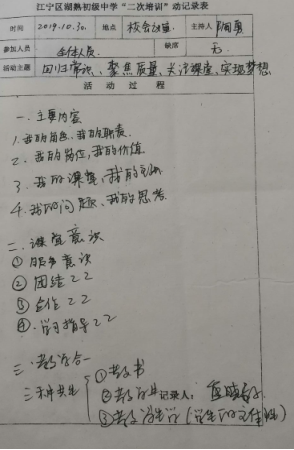 江宁区湖熟初级中学“二次培训”动记录表
时间 2019.10.30. 地点 校会议室 主持人 陶勇
参加人员 全体人员 缺席 无
活动主题 回归常识、聚焦质量、关注课堂、实现梦想
活动过程
一. 主要内容
1. 我的角色、我的职责
2. 我的岗位,我的价值
3. 我的课堂,我的
4. 我的问题、我的思考
二. 课堂意识
① 服务意识
② 团结〃〃
③ 合作〃〃
④ 学习指导〃〃
三. 合一
三种 ① 教书
② 教 记录人:
③ 教 学生学(学生的主体性)